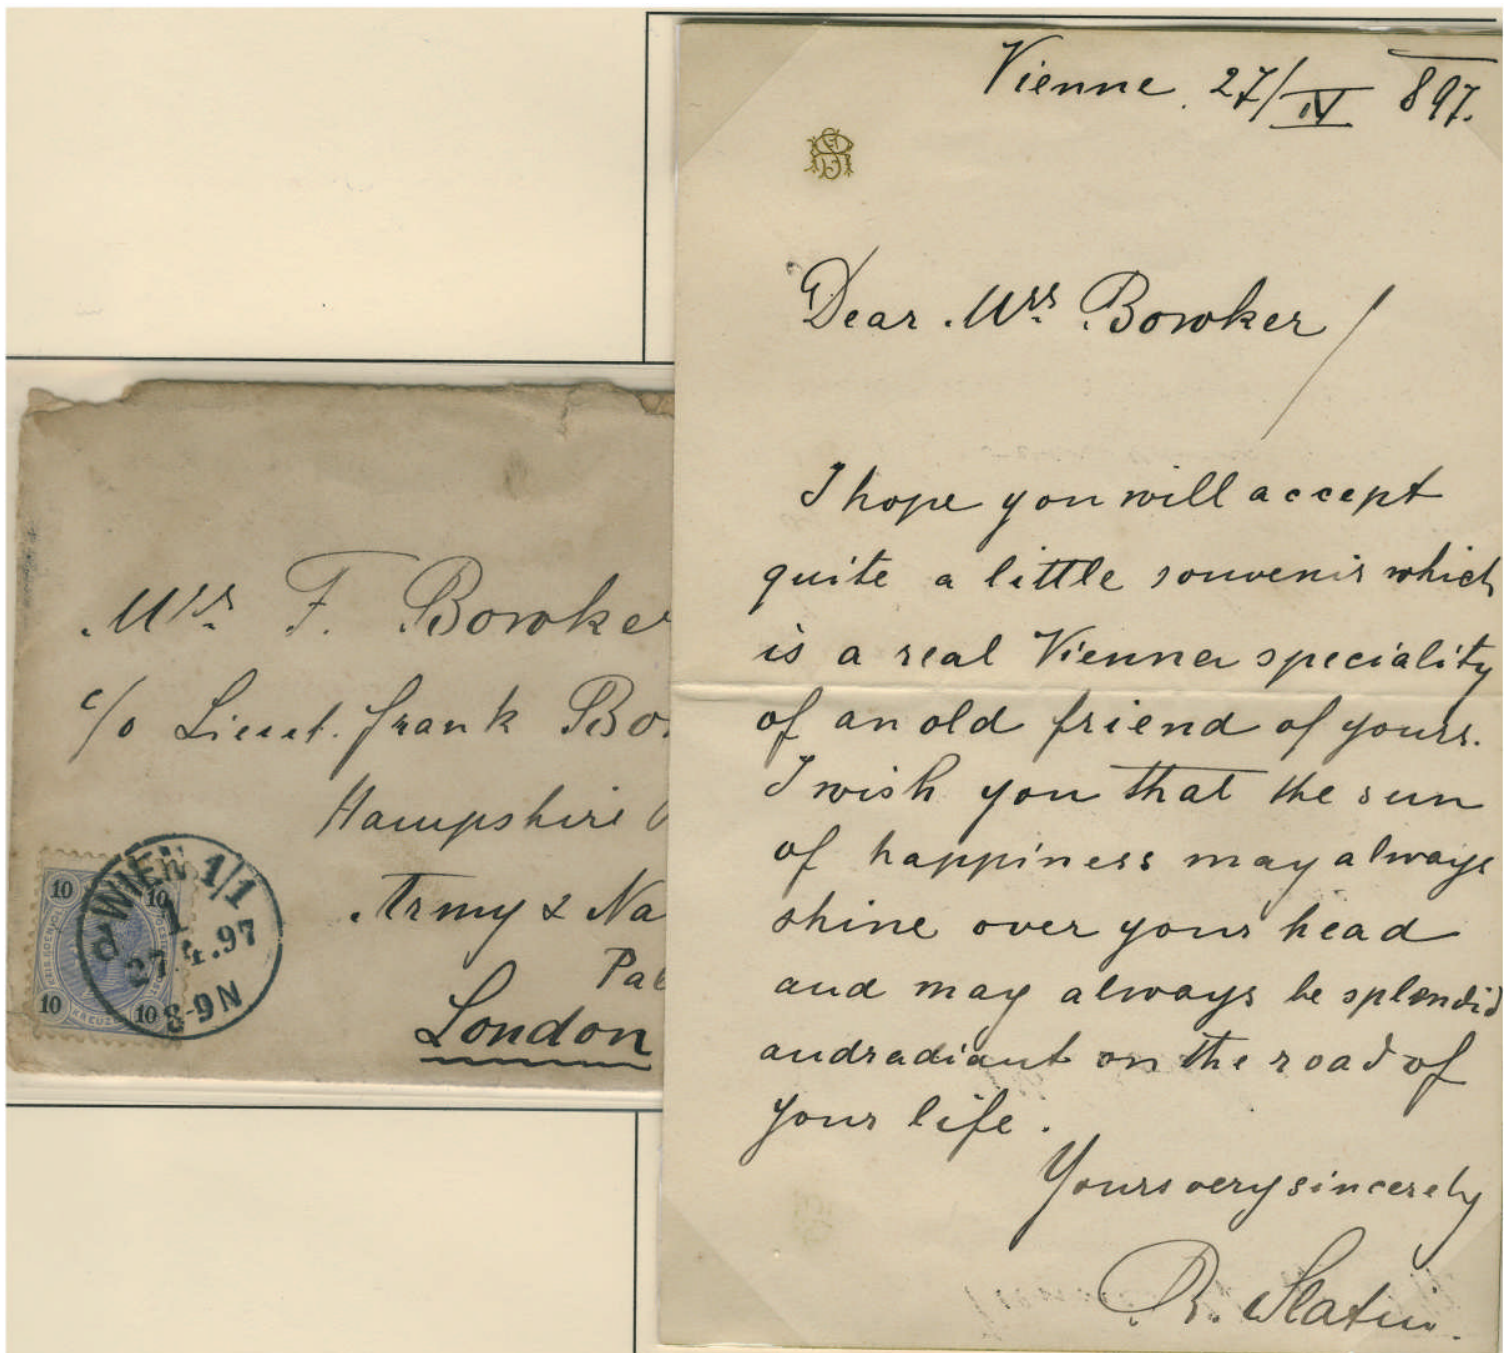 Mrs. F. Bowker
c/o Lieut. Frank
Hampshire
Army & Na
Pal
London
WIEN 1/1
1
27.4.97
8-9N
d
10
10
10
10
KREUZER
Vienne 27/IV 897.
Dear Mrs. Bowker /
I hope you will accept
quite a little souvenir which
is a real Vienna speciality
of an old friend of yours.
I wish you that the sun
of happiness may always
shine over your head
and may always be splendid
and radiant on the road of
your life.
Yours very sincerely
R. Slatin.